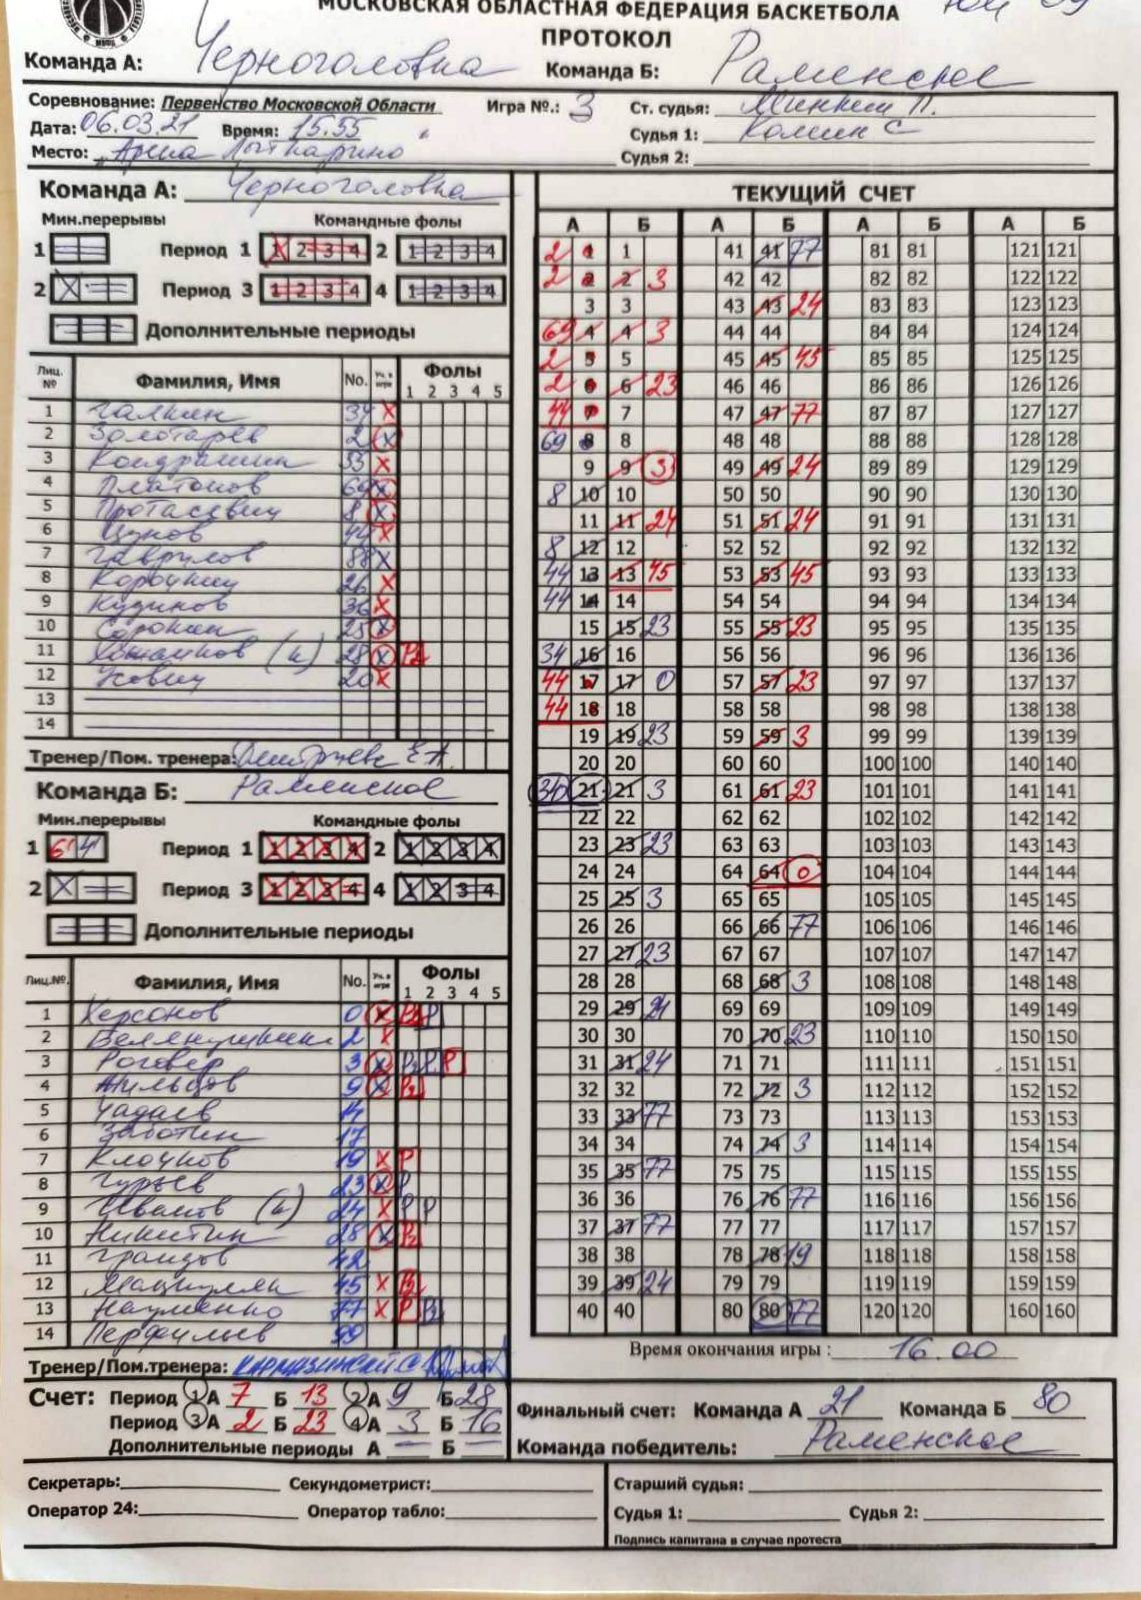 МОСКОВСКАЯ ОБЛАСТНАЯ ФЕДЕРАЦИЯ БАСКЕТБОЛА
ПРОТОКОЛ
Команда А: Черноголовка Команда Б: Раменское
Соревнование: Первенство Московской Области Игра №.: 3 Ст. судья:
Дата: 06.03.21 Время: 15.55 Судья 1: Комин С
Место: Арена Лыткарино Судья 2:
Команда А: Черноголовка
Мин.перерывы Командные фолы
1 Период 1 1 2 3 4 2 1 2 3 4
2 X Период 3 1 2 3 4 4 1 2 3 4
Дополнительные периоды
Лиц. № Фамилия, Имя No. Уч. в игре Фолы 1 2 3 4 5
1 Галкин 34 X
2 Золотарев 2 X
3 Кондрашин 33 X
4 Платонов 69 X
5 Протасевич 8 X
6 44 X
7 Гаврилов 88 X
8 26 X
9 Кудинов 36 X
10 Сорокин 25 X
11 (к) 28 X P2
12 20 X
13
14
Тренер/Пом. тренера: Дмитриев Е.А.
Команда Б: Раменское
Мин.перерывы Командные фолы
1 6 4 Период 1 1 2 3 4 2 1 2 3 4
2 X Период 3 1 2 3 4 4 1 2 3 4
Дополнительные периоды
Лиц.№. Фамилия, Имя No. Уч. в игре Фолы 1 2 3 4 5
1 Херсонов 0 X P2 P
2 2 X
3 Роговер 3 X P2 P P
4 9 X P2
5 Чадаев 14
6 Заботин 17
7 Клочков 19 X P
8 Гурьев 23 X P
9 Иванов (к) 24 X P P
10 Никитин 28 X P2
11 42
12 45 X P2
13 Науменко 77 X P P2
14 Перфильев 99
Тренер/Пом.тренера:
Счет: Период 1 А 7 Б 13 2 А 9 Б 28
Период 3 А 2 Б 23 4 А 3 Б 16
Дополнительные периоды А — Б —
ТЕКУЩИЙ СЧЕТ
А Б А Б А Б А Б
2 1 1 41 41 77 81 81 121 121
2 2 2 3 42 42 82 82 122 122
3 3 43 43 24 83 83 123 123
69 4 4 3 44 44 84 84 124 124
2 5 5 45 45 45 85 85 125 125
2 6 6 23 46 46 86 86 126 126
44 7 7 47 47 77 87 87 127 127
69 8 8 48 48 88 88 128 128
9 9 3 49 49 24 89 89 129 129
8 10 10 50 50 90 90 130 130
11 11 24 51 51 24 91 91 131 131
8 12 12 52 52 92 92 132 132
44 13 13 45 53 53 45 93 93 133 133
44 14 14 54 54 94 94 134 134
15 15 23 55 55 23 95 95 135 135
34 16 16 56 56 96 96 136 136
44 17 17 0 57 57 23 97 97 137 137
44 18 18 58 58 98 98 138 138
19 19 23 59 59 3 99 99 139 139
20 20 60 60 100 100 140 140
36 21 21 3 61 61 23 101 101 141 141
22 22 62 62 102 102 142 142
23 23 23 63 63 103 103 143 143
24 24 64 64 0 104 104 144 144
25 25 3 65 65 105 105 145 145
26 26 66 66 77 106 106 146 146
27 27 23 67 67 107 107 147 147
28 28 68 68 3 108 108 148 148
29 29 24 69 69 109 109 149 149
30 30 70 70 23 110 110 150 150
31 31 24 71 71 111 111 151 151
32 32 72 72 3 112 112 152 152
33 33 77 73 73 113 113 153 153
34 34 74 74 3 114 114 154 154
35 35 77 75 75 115 115 155 155
36 36 76 76 77 116 116 156 156
37 37 77 77 77 117 117 157 157
38 38 78 78 19 118 118 158 158
39 39 24 79 79 119 119 159 159
40 40 80 80 77 120 120 160 160
Время окончания игры : 16.00
Финальный счет: Команда А 21 Команда Б 80
Команда победитель: Раменское
Секретарь: Секундометрист: Старший судья:
Оператор 24: Оператор табло: Судья 1: Судья 2:
Подпись капитана в случае протеста